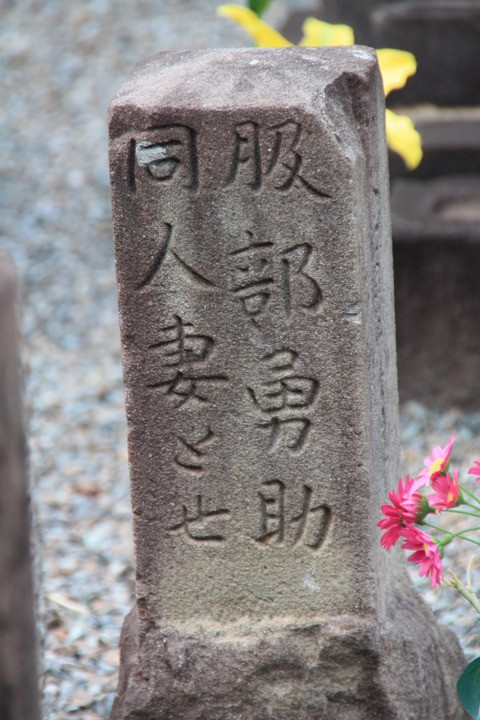 服部勇助
同人妻とせ